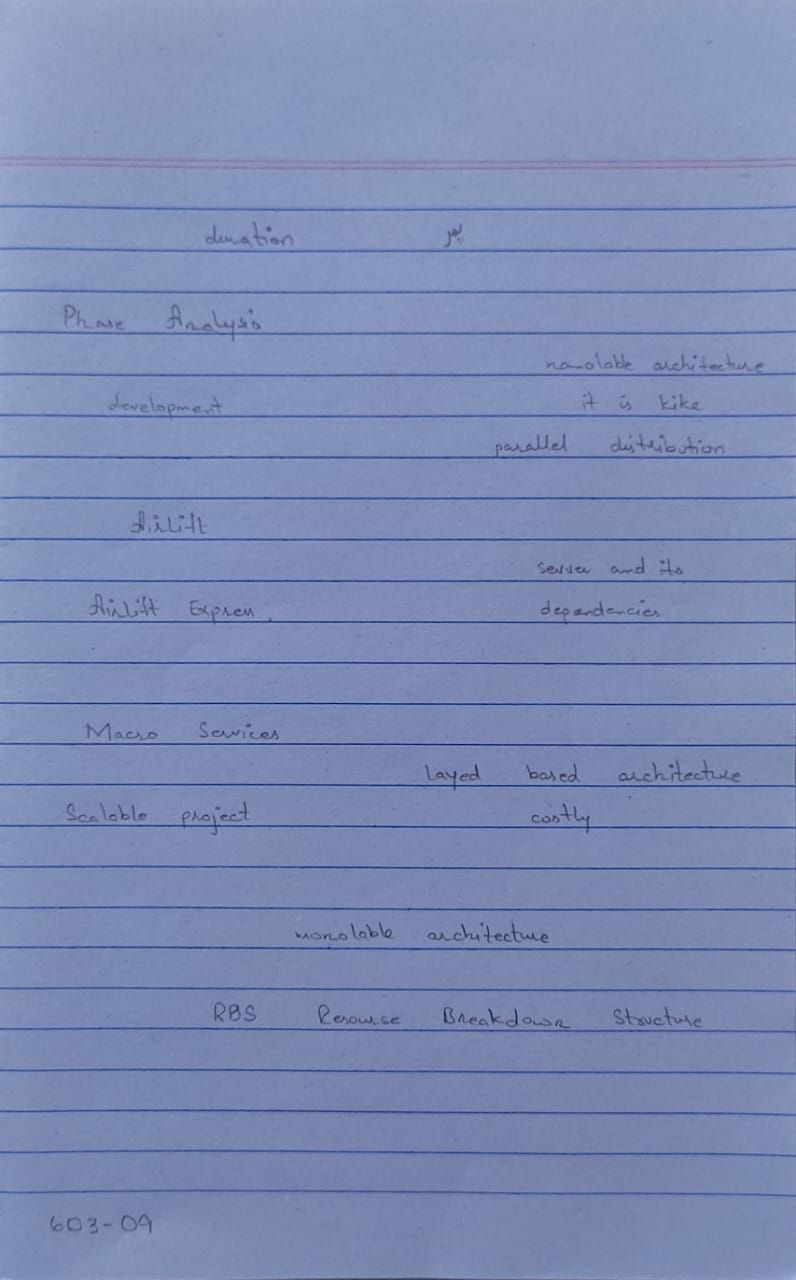 duration پیر
Phase Analysis
nanolable architecture
development it is kike
parallel distribution
Airlift
server and its
Airlift Express dependencies
Macro Services
Layed based architecture
Scalable project costly
monolable architecture
RBS Resourse Breakdown Structure
603-09